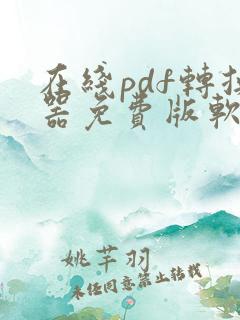 在綫pdf轉換
器免費版軟
姚芊羽
未任同意禁止转载